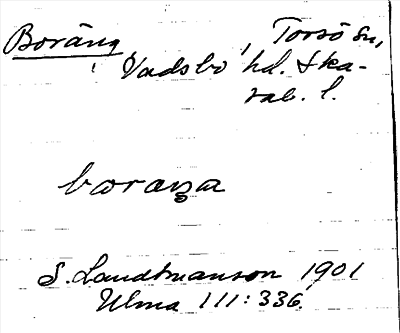 Boräng, Torsö sn,
Vadsbo hd. Ska-
rab. l.
boraŋa
S. Landtmanson 1901
Ulma 111:336